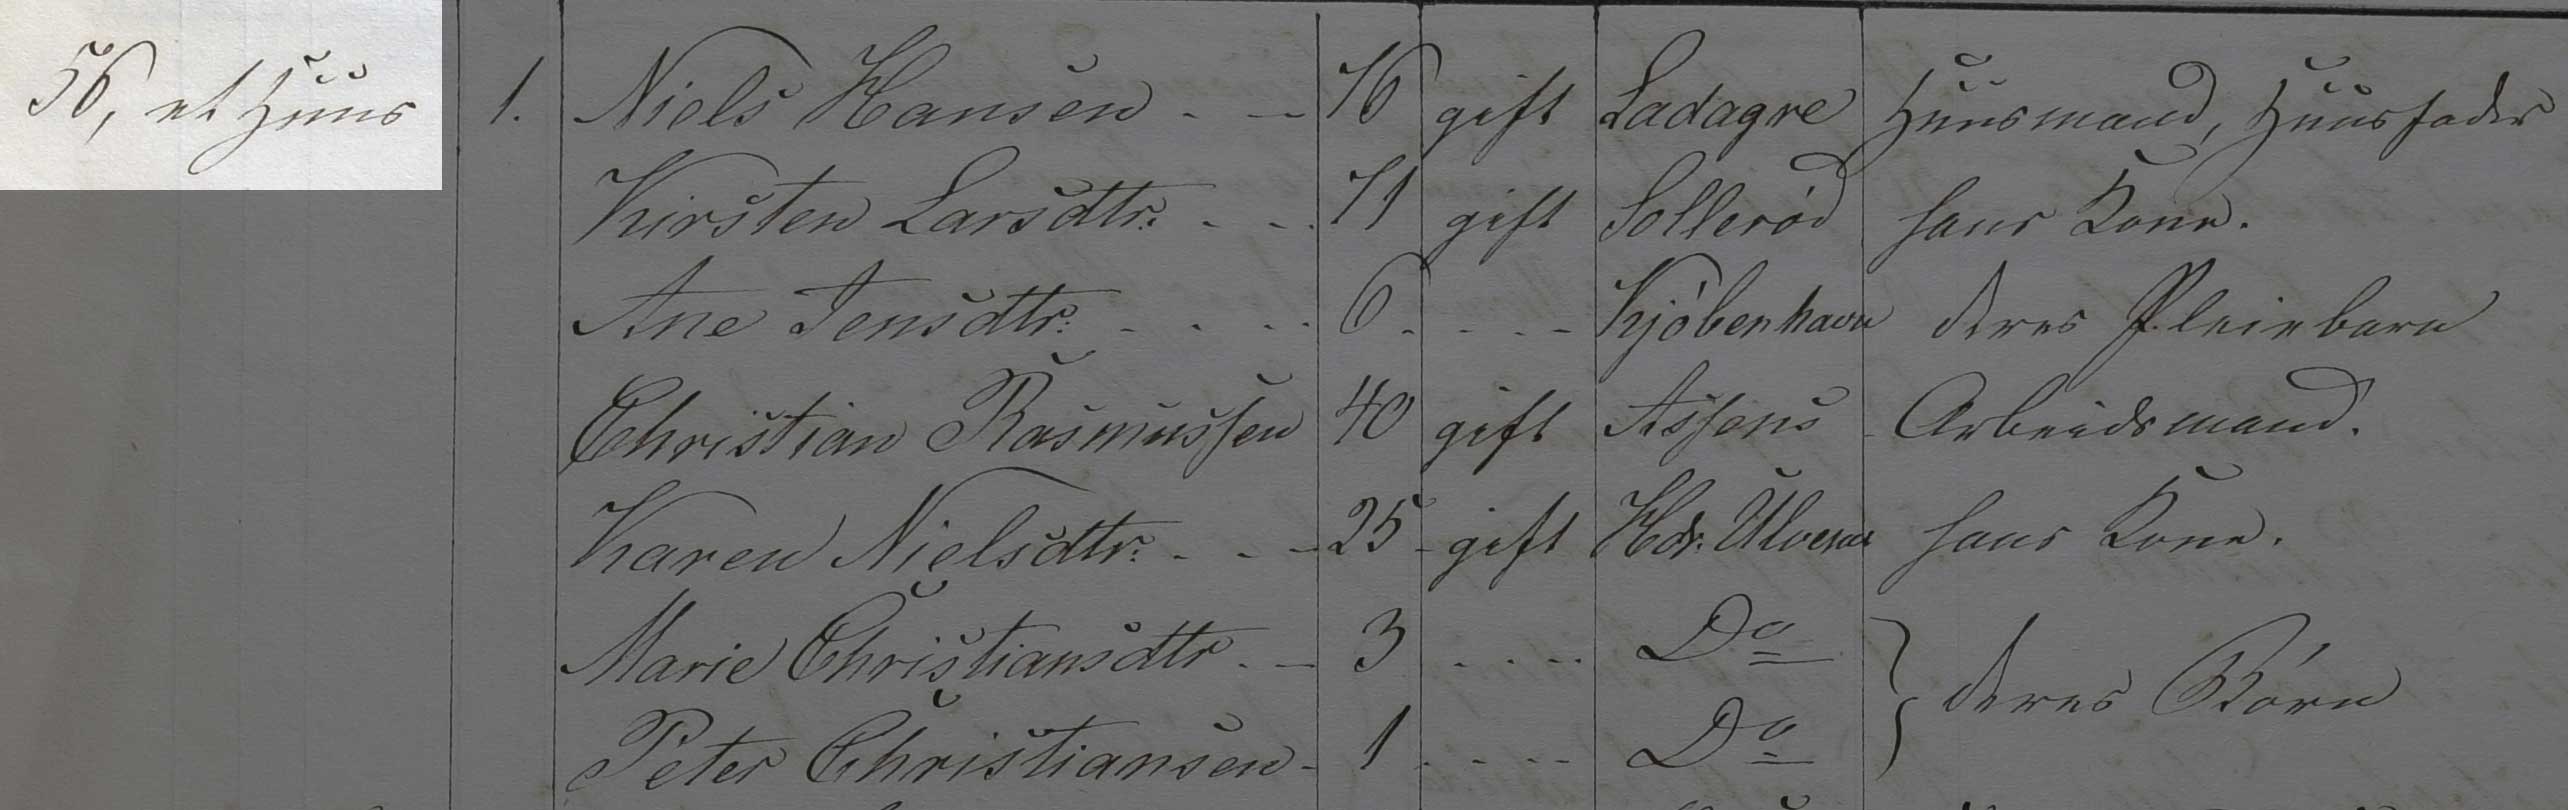 56, et Huus
1. Niels Hansen - - 76 gift Ladagre Huusmand, Huusfader
Kirsten Larsdtr. - - . 71 gift Sollerød hans Kone.
Ane Jensdtr. - - - - 6 - - - - Kjøbenhavn deres Pleiebarn
Christian Rasmussen 40 gift Assens Arbeidsmand.
Karen Nielsdtr. - - - 25 - gift Hds. hans Kone.
Marie Christiansdtr - - 3 - - - - Do } deres Børn
Peter Christiansen - 1 - - - - Do